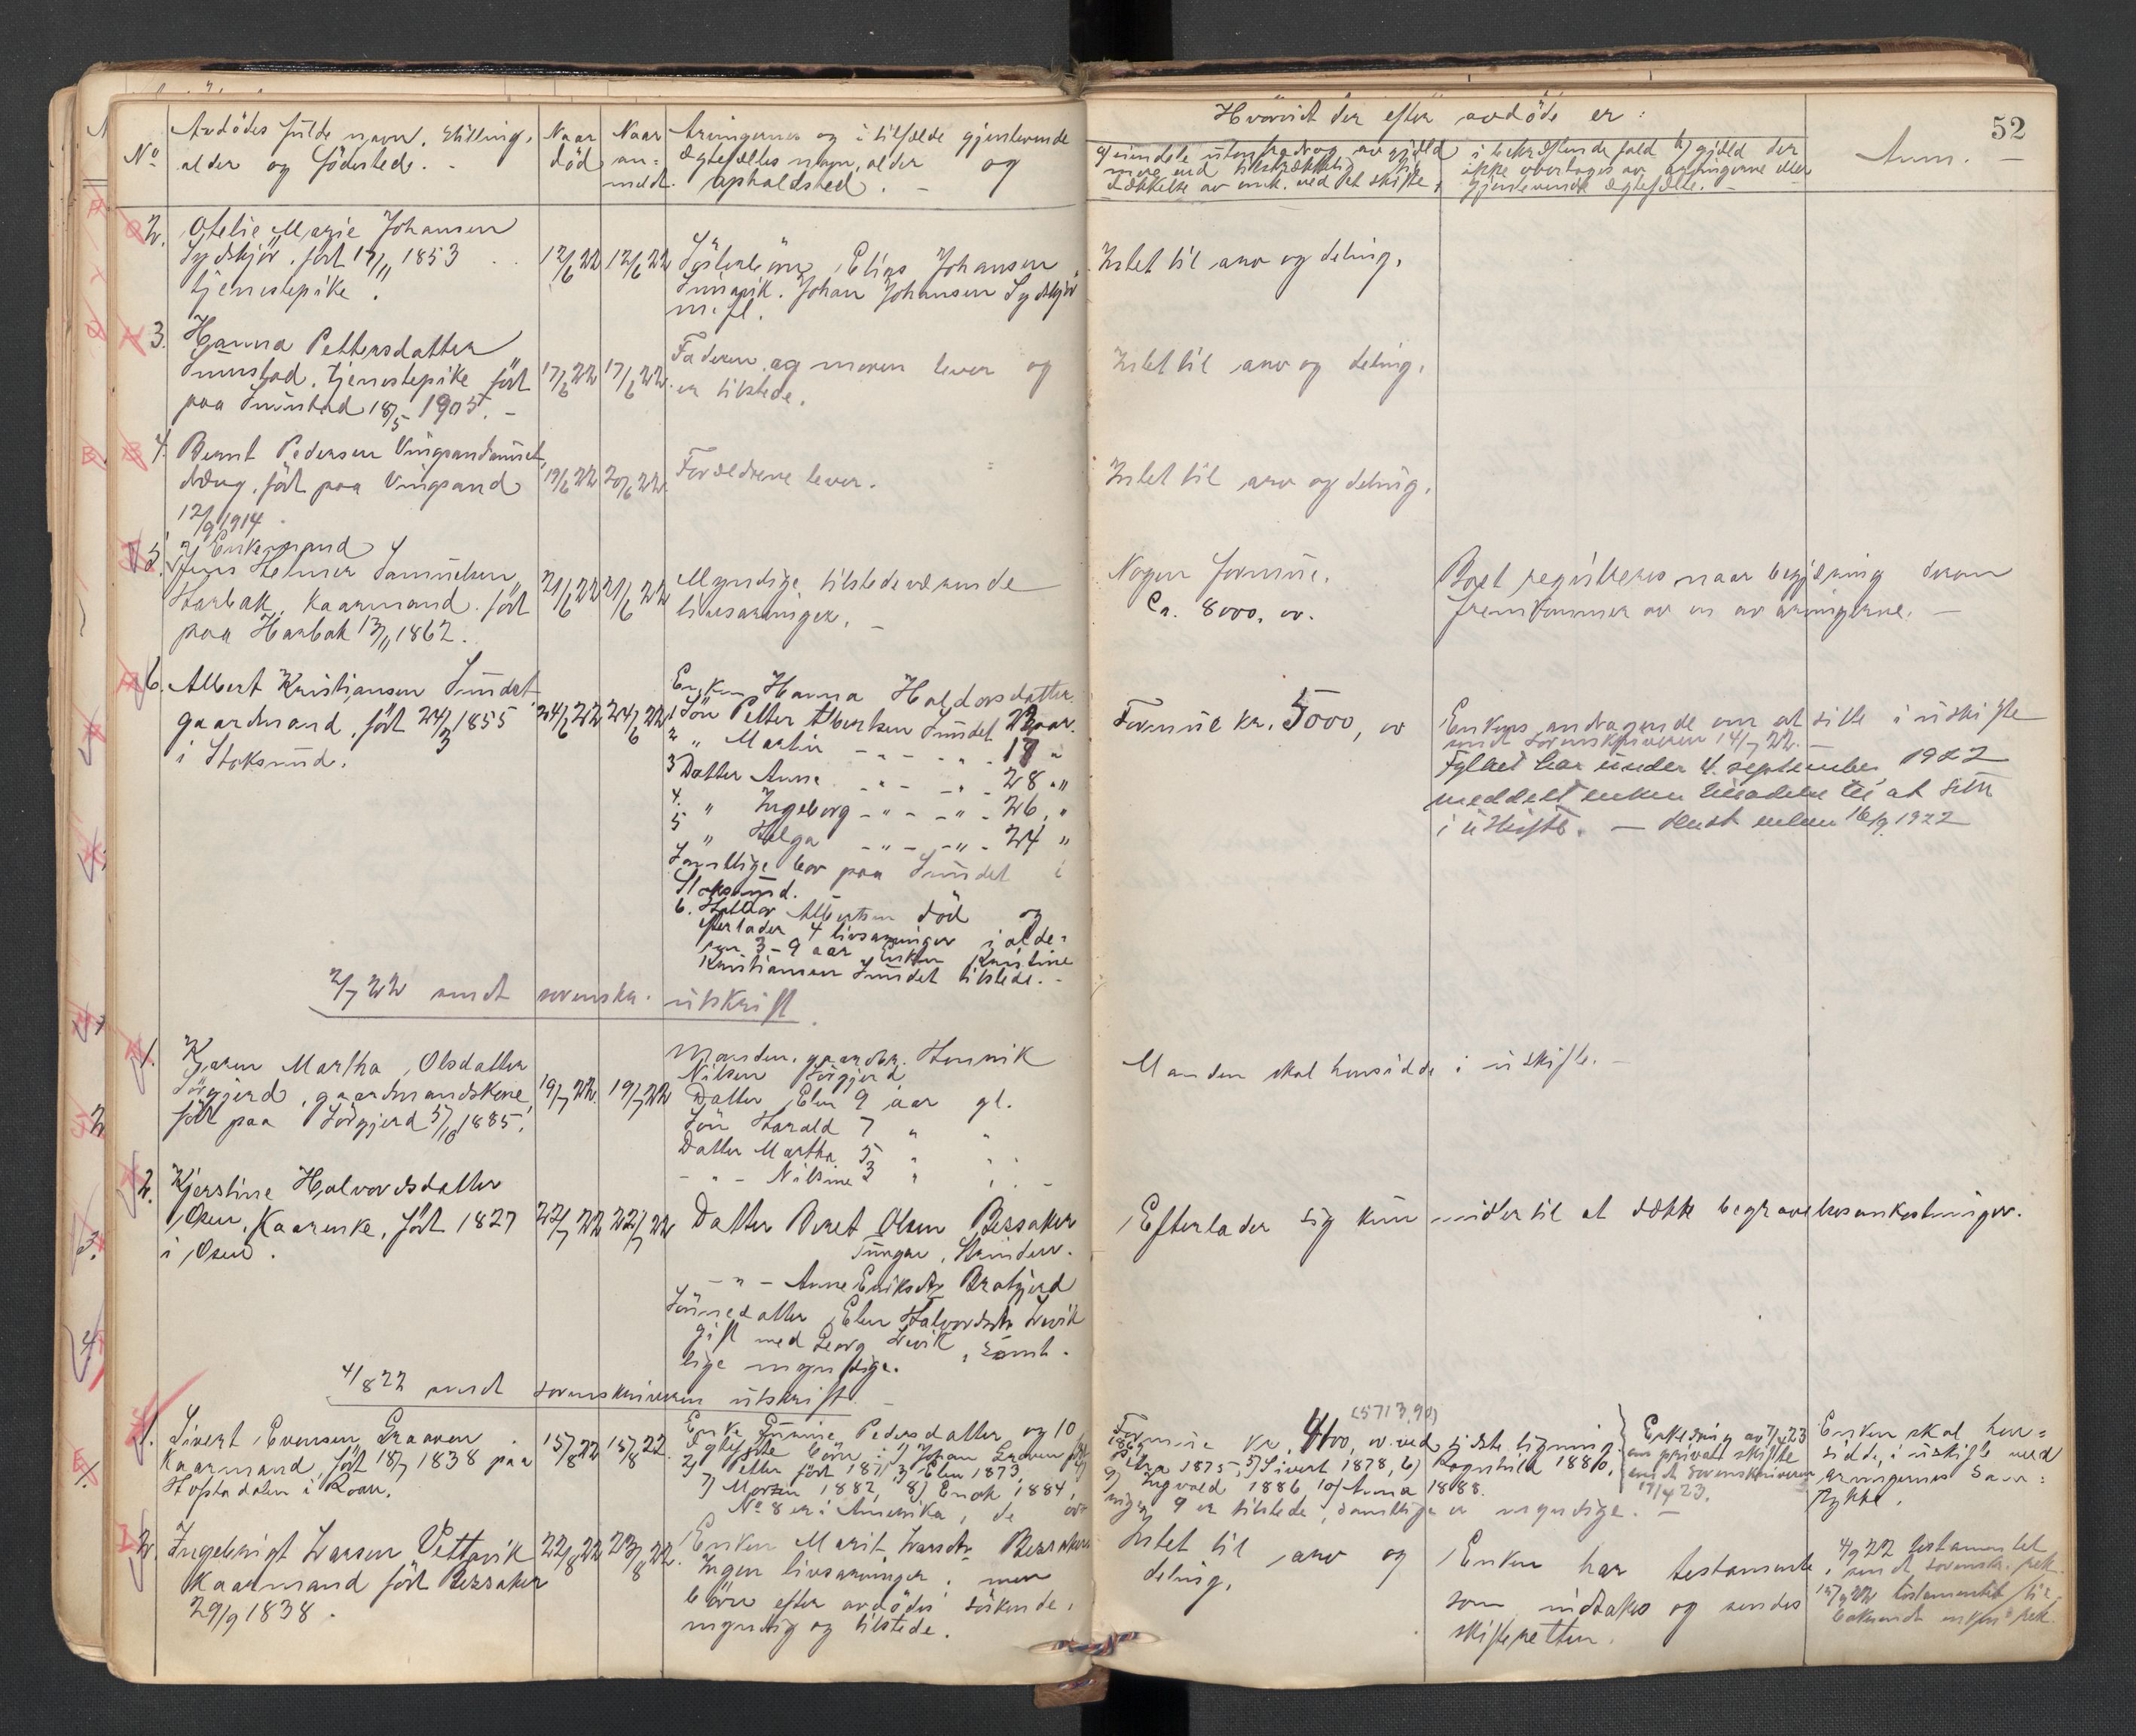 52
No
Avdödes fulde navn, stilling,
alder og födested. -
Naar
död
Naar
an=
meldt.
Arvingernes og i tilfælde gjenlevende
ægtefælles navn, alder og
opholdsted. -
Hvorvidt der efter avdöde er:
a) eiendele utenfradrag av gjæld
mere end tilstrækkelig til
dækkelse av omk. ved det skifte,
i bekræftende fald b) gjæld der
ikke overtages av arvingerne eller
gjenlevende ægtefælle. -
Anm. -
2. Otelie Marie Johansen
Sydskjör. födt 17/11 1853
tjenestepike.
12/6 22
12/6 22
Johan Johansen Sydskjör
m. fl.
Intet til arv og deling.
3. Hanna Pettersdatter
Sumstad, tjenestepike födt
paa Sumstad 18/5 1905. -
17/6 22
17/6 22
Faderen og moren lever og
er tilstede.
Intet til arv og deling.
4. Bernt Pedersen Vingsandaunet,
dreng, födt paa Vingsand
12/9 1914.
19/6 22
20/6 22
Forældrene lever.
Intet til arv og deling.
5. Enkemand
Jens Helmer Samuelsen
Harbak, Kaarmand. födt
paa Harbak 13/11 1862.
21/6 22
21/6 22
Myndige tilstedeværende
livsarvinger. -
Nogen formue.
Ca. 8000, oo.
Boet registreres naar begjæring derom
fremkommer av en av arvingerne. -
6. Albert Kristiansen Sundet
gaardmand, födt 24/3 1855
i Stoksund.
24/6 22
24/6 22
Enken Hanna Haldorsdatter
1 Sön Petter Albertsen Sundet 22 aar.
2 " Martin - " - - " - 17 "
3 Datter Anna - " - - " - 28 "
4. " Ingeborg - " - - " - 26 "
5 " Helga - " - - " - 24 "
Samtlige bor paa Sundet i
Stoksund.
6. Albertsen död og
efterlader 4 livsarvinger i alde=
ren 3-9 aar Enken Kristine
Kristiansen Sundet tilstede. -
Formue kr. 5000, oo
Enkens andragende om at sitte i uskifte
sendt sorenskriveren 14/7 22. -
Fylket har under 4. september 1922
meddelt enken tilladelse til at sitte
i uskifte. - sendt enken 16/9 1922
2/7 22 sendt sorenskr. utskrift.
1. Karen Martha Olsdatter
Sörgjerd, gaardmandskone,
födt paa Sörgjerd 5/10 1885.
19/7 22.
19/7 22
Manden, gaardbr. Henrik
Nilsen Sörgjerd,
Datter Elen 9 aar gl.
Sön Harald 7 " "
Datter Martha 5 " "
- " - Nilsine 3 " "
Manden skal hensidde i uskifte. -
2. Kjerstine Halvordsdatter
Osen, Kaarenke, födt 1827
i Osen.
22/7 22
22/7 22
Datter Beret Olsen Bessaker
Strinden.
- " - Anne Eriksdtr Bratgjerd
Sönnedatter Elen Halvordsdtr
gift med Georg samt-
lige myndige.
Efterlader sig kun midler til at dække begravelsesomkostninger.
4/8 22 sendt sorenskriveren utskrift. -
1. Sivert Evensen Graaven
Kaarmand, födt 18/7 1838 paa
Hofstadalen i Roan.
15/8 22
15/8 22.
Enke Gunnine Pedersdatter og 10
ægtefödte börn: 1) Johan Graven födt 1869
2) Petter födt 1871, 3) Elen 1873, 4) Petra 1875, 5) Sivert 1878, 6) Ragnhild 1880,
7) Morten 1882, 8) Enok 1884, 9) Ingvald 1886, 10) Anna 1888.
No 8 er i Amerika, de öv=
rige 9 er tilstede, samtlige er myndige. -
(5713,90)
Formue kr. 4100, oo ved sidste ligning.
Erklæring av 7/4 23
om privat skifte
sendt sorenskriveren
17/4 23.
Enken skal hen=
sidde i uskifte med
arvingernes sam=
tykke.
2. Ingebrigt Larsen Vettavik
Kaarmand födt Bessaker
29/9 1838.
22/8 22
23/8 22.
Enken Marit Larsdtr Bessaker.
Ingen livsarvinger, men
börn efter avdödes söskende,
myndig og tilstede.
Intet til arv og
deling.
Enken har testamente,
som indtakes og sendes
skifteretten.
4/9 22 testamentet
sendt sorenskr. rek.
15/9 22 testamentet til=
bakesendt enken rek.